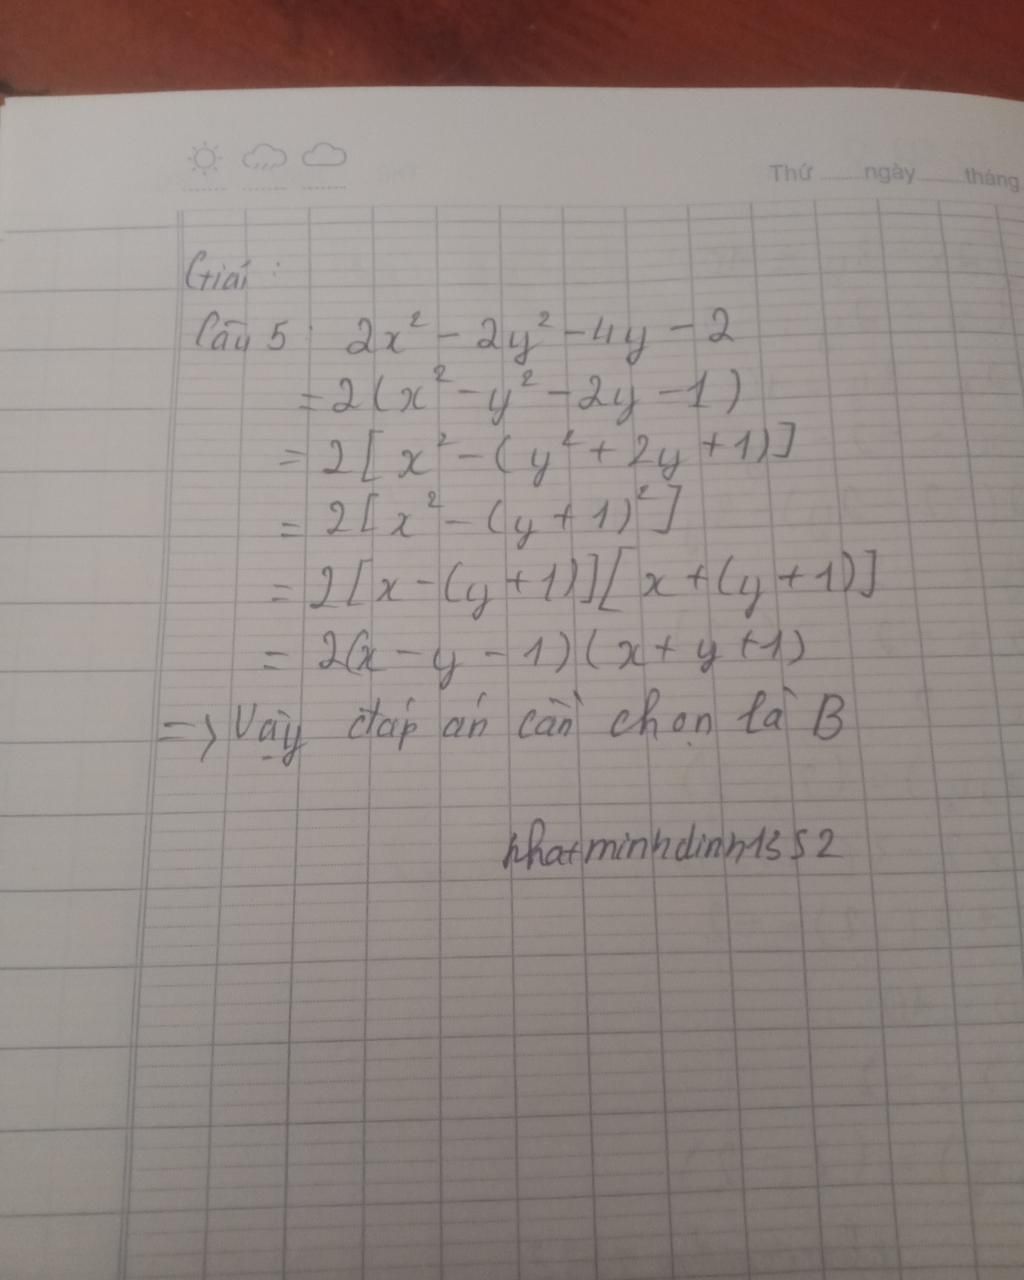 Thứ ...... ngày ...... tháng
Giải :
Câu 5 : 2x² - 2y² - 4y - 2
= 2(x² - y² - 2y - 1)
= 2[x² - (y² + 2y + 1)]
= 2[x² - (y + 1)²]
= 2[x - (y + 1)][x + (y + 1)]
= 2(x - y - 1)(x + y + 1)
=> Vậy đáp án cần chọn là B
nhatminhdinh1352